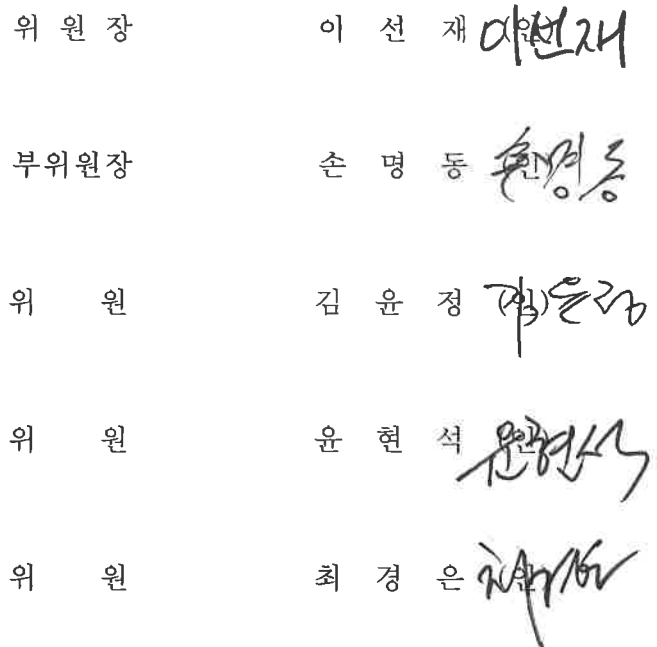 위 원 장 이 선 재 (인) 이선재
부위원장 손 명 동 (인) 손명동
위 원 김 윤 정 (인) 김윤정
위 원 윤 현 석 (인) 윤현석
위 원 최 경 은 (인)